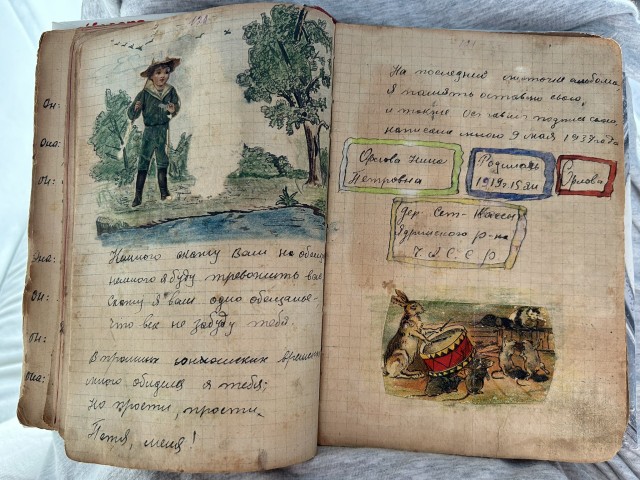 Он:
Она:
Он:
Она:
Он:
Он:
Она:
Немного скажу Вам но обещ
немного я буду тревожить вас
Скажу я вам одно обещанье-
что век не забуду тебя.
В прошлых юношеских времен
много обидела я тебя;
но прости, прости
Петя, меня!
На последний листочек альбома
Я память оставлю свою,
и такую
написана мною 9 мая 1937 года
Орлова Нина
Петровна
Родилась
1919г 15
Орлова
дер. Сет-Кассы
Ядринского р-на
Ч.А.С.С.Р